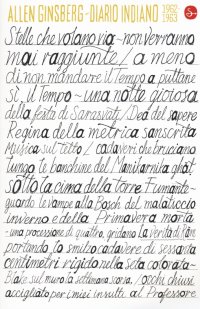 ALLEN GINSBERG – DIARIO INDIANO 1962 1963
Stelle che volano via – non verranno
mai raggiunte / a meno
di non mandare il Tempo a puttane
Sì, il Tempo – una notte gioiosa
della festa di Sarasvati / Dea del sapere
Regina della metrica sanscrita
Musica sul tetto / cadaveri che bruciano
lungo le banchine del Manikarnika ghat
sotto la cima della torre Fumante –
guardo le vampe alla Bosch del malaticcio
inverno e della Primavera morta
– una processione di quattro, gridano la verità di
portando lo smilzo cadavere di sessanta
centimetri rigido nella seta colorata –
Blake sul muro la settimana scorsa, / occhi chiusi
accigliato per i miei insulti al Professore